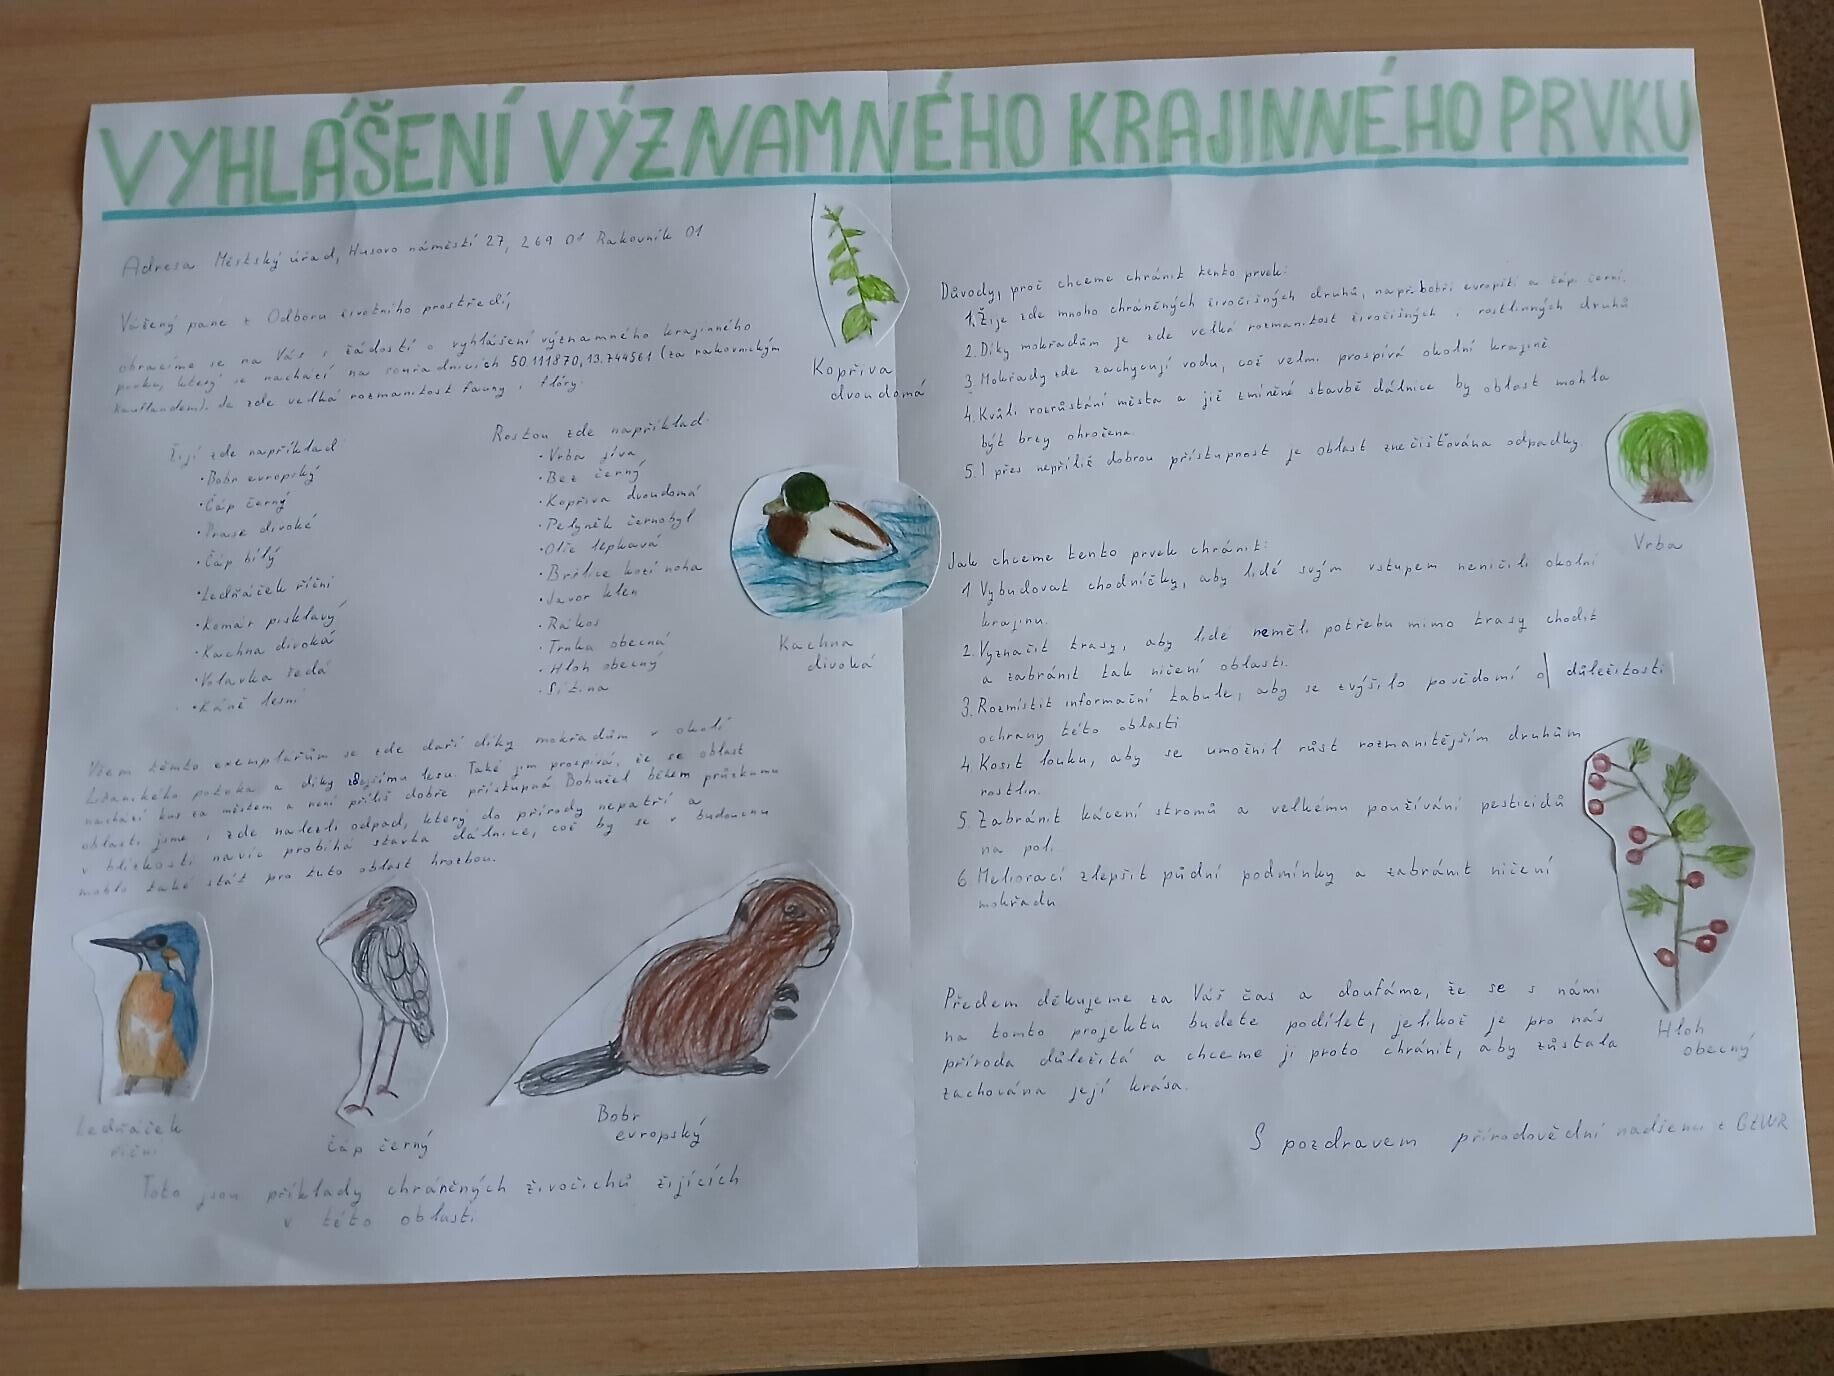 VYHLÁŠENÍ VÝZNAMNÉHO KRAJINNÉHO PRVKU
Adresa Městský úřad, Husovo náměstí 27, 269 01 Rakovník 01
Vážený pane z Odboru životního prostředí,
obracíme se na Vás s žádostí o vyhlášení významného krajinného
prvku, který se nachází na souřadnicích 50.111870,13.744561 (za rakovnickým
Kauflandem). Je zde velká rozmanitost fauny i flóry.
Žijí zde například:
• Bobr evropský
• Čáp černý
• Prase divoké
• Čáp bílý
• Ledňáček říční
• Komár pisklavý
• Kachna divoká
• Volavka šedá
• Káně lesní
Rostou zde například:
• Vrba jíva
• Bez černý
• Kopřiva dvoudomá
• Pelyněk černobyl
• Olše lepkavá
• Bršlice kozí noha
• Javor klen
• Rákos
• Trnka obecná
• Hloh obecný
• Sítina
Všem těmto exemplářům se zde daří díky mokřadům v okolí
Lišanského potoka a díky zdejšímu lesu. Také jim prospívá, že se oblast
nachází kus za městem a není příliš dobře přístupná. Bohužel během průzkumu
oblasti jsme i zde nalezli odpad, který do přírody nepatří a
v blízkosti navíc probíhá stavba dálnice, což by se v budoucnu
mohlo také stát pro tuto oblast hrozbou.
Ledňáček
říční
čáp černý
Bobr
evropský
Toto jsou příklady chráněných živočichů žijících
v této oblasti
Kopřiva
dvoudomá
Kachna
divoká
Důvody, proč chceme chránit tento prvek:
1. Žije zde mnoho chráněných živočišných druhů, např. bobři evropští a čáp černí.
2. Díky mokřadům je zde velká rozmanitost živočišných i rostlinných druhů
3. Mokřady zde zachycují vodu, což velmi prospívá okolní krajině
4. Kvůli rozrůstání města a již zmíněné stavbě dálnice by oblast mohla
být brzy ohrožena.
5. I přes nepříliš dobrou přístupnost je oblast znečišťována odpadky
Vrba
Jak chceme tento prvek chránit:
1 Vybudovat chodníčky, aby lidé svým vstupem neničili okolní
krajinu.
2. Vyznačit trasy, aby lidé neměli potřebu mimo trasy chodit
a zabránit tak ničení oblasti.
3. Rozmístit informační tabule, aby se zvýšilo povědomí o důležitosti
ochrany této oblasti
4. Kosit louku, aby se umožnil růst rozmanitějším druhům
rostlin.
5. Zabránit kácení stromů a velkému používání pesticidů
na poli.
6 Meliorací zlepšit půdní podmínky a zabránit ničení
mokřadu
Hloh
obecný
Předem děkujeme za Váš čas a doufáme, že se s námi
na tomto projektu budete podílet, jelikož je pro nás
příroda důležitá a chceme ji proto chránit, aby zůstala
zachována její krása.
S pozdravem přírodovědní nadšenci z GZWR